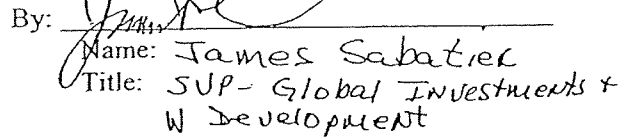 By:
Name: James Sabatier
Title: SVP- Global Investments +
W Development